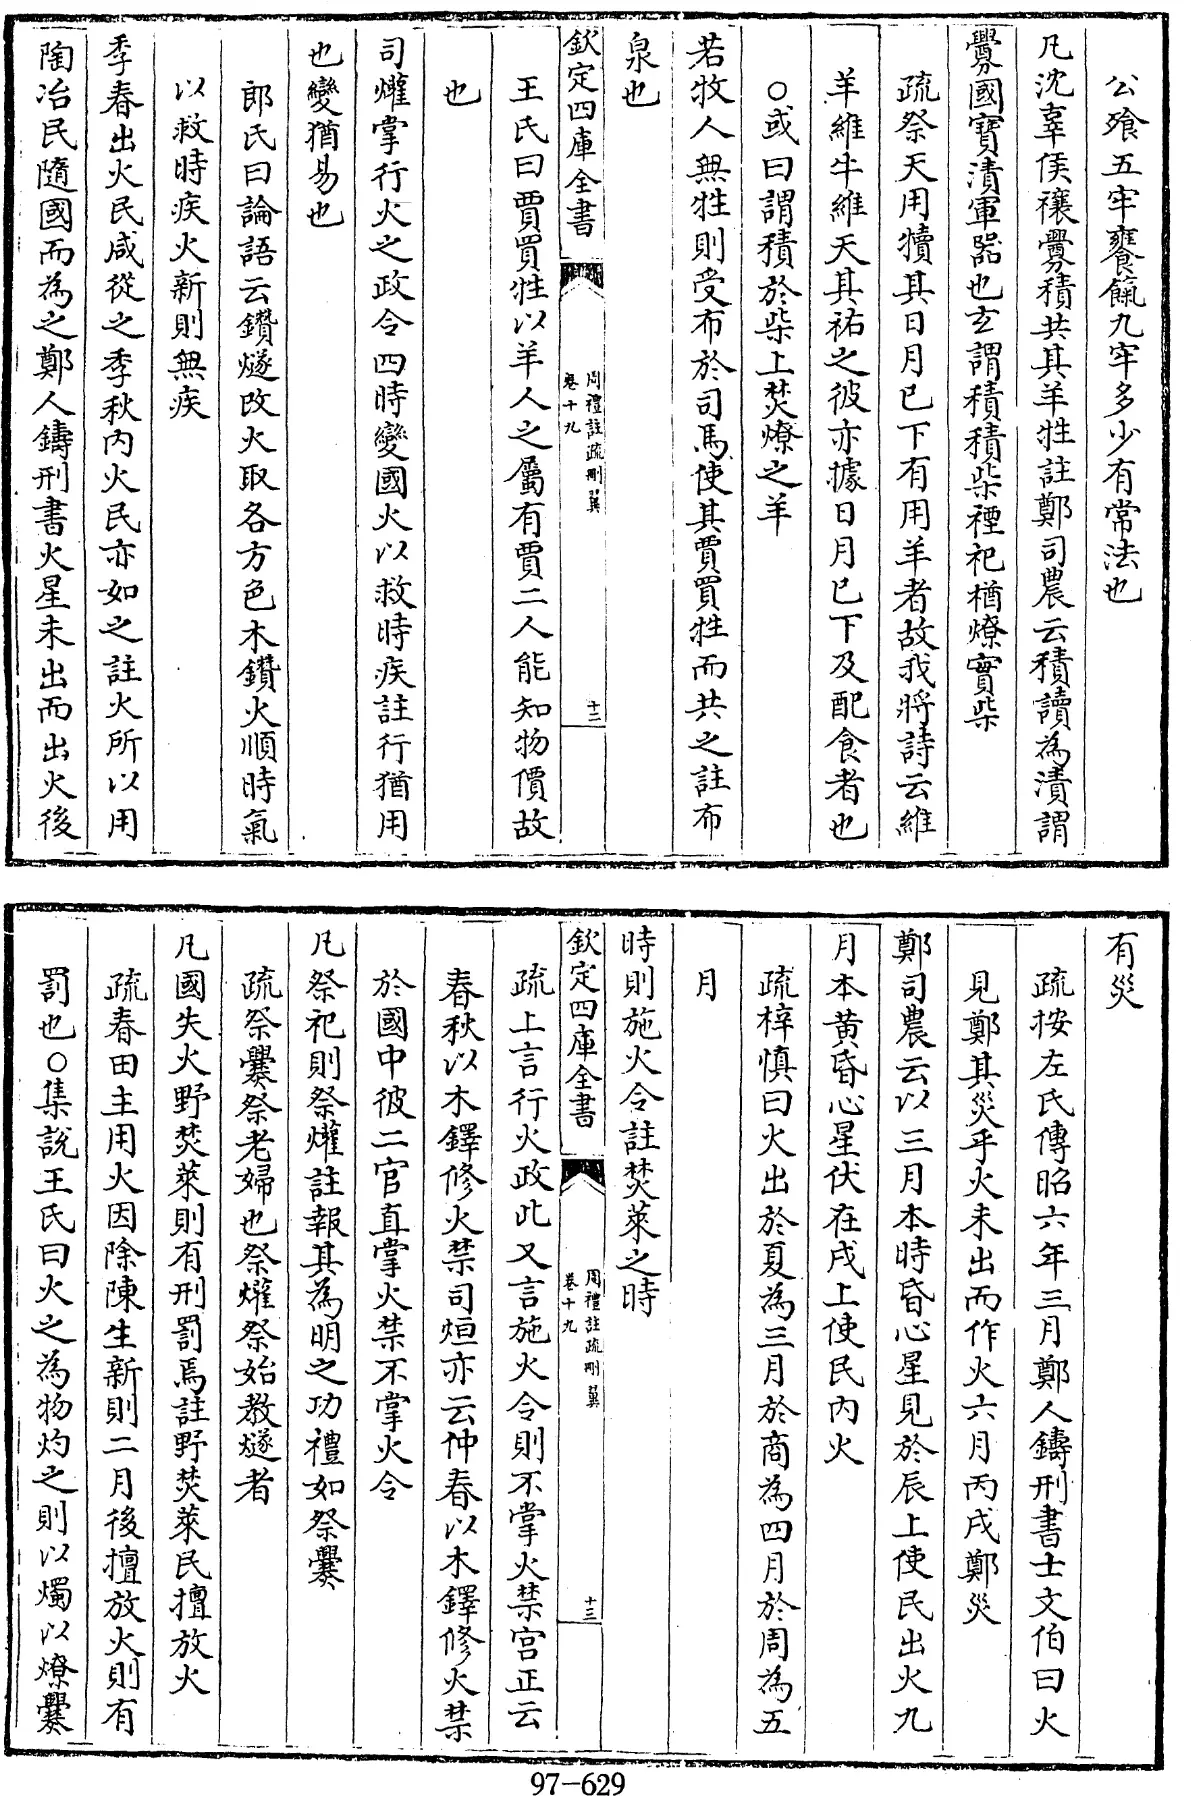 公飱五牢饔餼九牢多少有常法也
凡沈辜侯禳釁積共其羊牲註鄭司農云積讀為漬謂
釁國寶漬軍器也玄謂積積柴禋祀楢燎實柴
疏祭天用犢其日月已下有用羊者故我將詩云維
羊維牛維天其祐之彼亦據日月已下及配食者也
○或曰謂積於柴上焚燎之羊
若牧人無牲則受布於司馬使其賈買牲而共之註布
泉也
欽定四庫全書
周禮註疏刪翼
卷十九
十二
王氏曰賈買牲以羊人之屬有賈二人能知物價故
也
司爟掌行火之政令四時變國火以救時疾註行猶用
也變猶易也
郎氏曰論語云鑽燧改火取各方色木鑽火順時氣
以救時疾火新則無疾
季春出火民咸從之季秋內火民亦如之註火所以用
陶冶民隨國而為之鄭人鑄刑書火星未出而出火後
有災
疏按左氏傳昭六年三月鄭人鑄刑書士文伯曰火
見鄭其災乎火未出而作火六月丙戌鄭災
鄭司農云以三月本時昏心星見於辰上使民出火九
月本黄昏心星伏在戌上使民內火
疏梓慎曰火出於夏為三月於商為四月於周為五
月
時則施火令註焚萊之時
欽定四庫全書
周禮註疏刪翼
卷十九
十三
疏上言行火政此又言施火令則不掌火禁宫正云
春秋以木鐸修火禁司烜亦云仲春以木鐸修火禁
於國中彼二官直掌火禁不掌火令
凡祭祀則祭爟註報其為明之功禮如祭爨
疏祭爨祭老婦也祭爟祭始教燧者
凡國失火野焚萊則有刑罰焉註野焚萊民擅放火
疏春田主用火因除陳生新則二月後擅放火則有
罰也○集說王氏曰火之為物灼之則以燭以燎爨
97-629